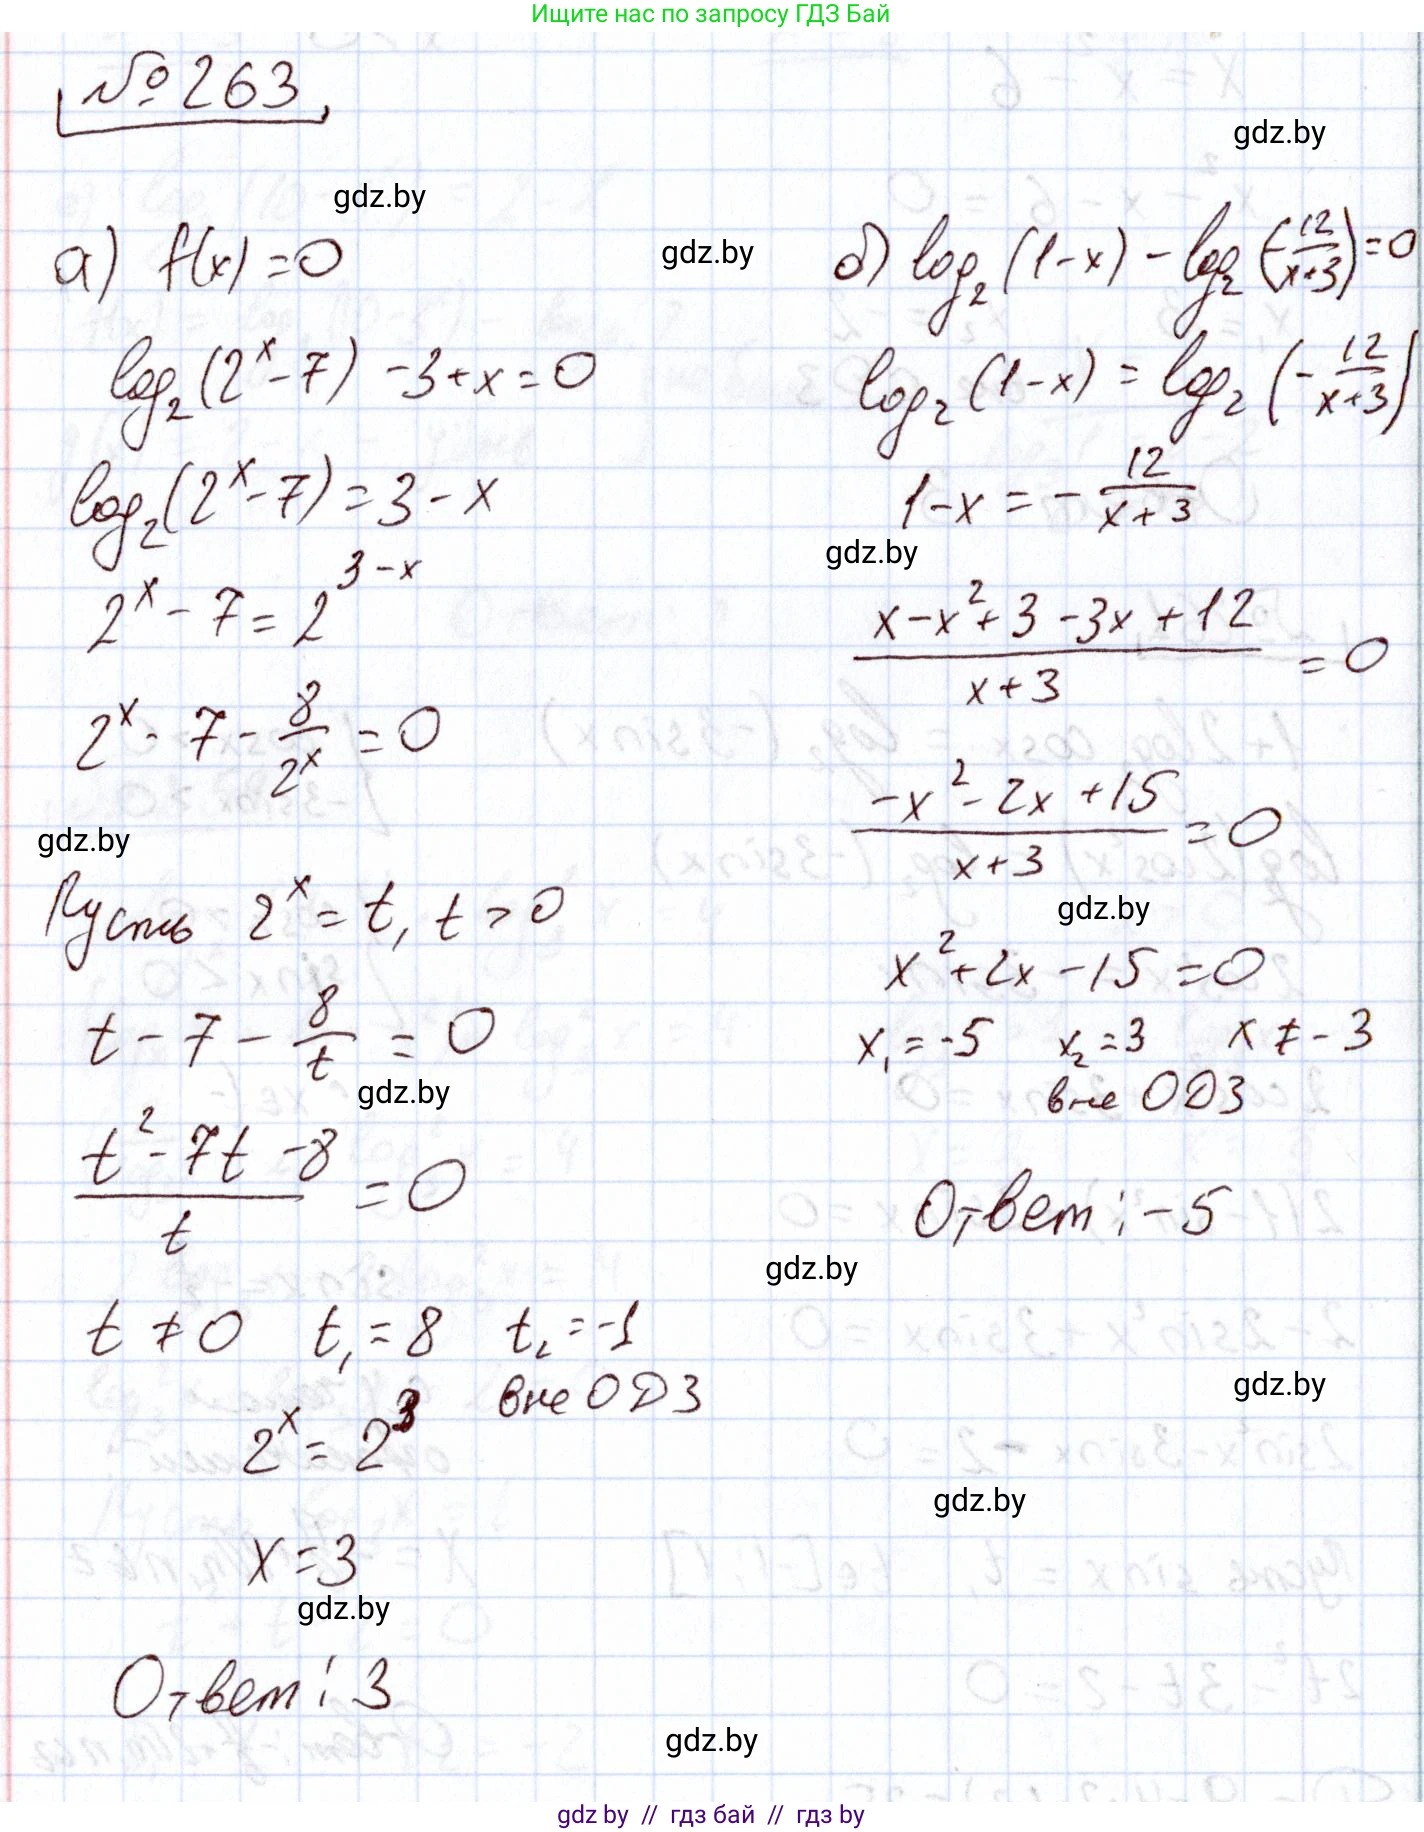 Ищите нас по запросу ГДЗ Бай
№ 263
gdz.by
gdz.by
а) f(x) = 0
log₂(2ˣ - 7) - 3 + x = 0
log₂(2ˣ - 7) = 3 - x
2ˣ - 7 = 2³⁻ˣ
2ˣ - 7 - 8/2ˣ = 0
gdz.by
Пусть 2ˣ = t, t > 0
t - 7 - 8/t = 0
gdz.by
(t² - 7t - 8)/t = 0
t ≠ 0 t₁ = 8 t₂ = -1
вне ОДЗ
2ˣ = 2³
x = 3
gdz.by
Ответ: 3
gdz.by
б) log₂(1-x) - log₂(-12/(x+3)) = 0
log₂(1-x) = log₂(-12/(x+3))
1 - x = -12/(x+3)
gdz.by
(x - x² + 3 - 3x + 12)/(x+3) = 0
(-x² - 2x + 15)/(x+3) = 0
gdz.by
x² + 2x - 15 = 0
x₁ = -5 x₂ = 3 x ≠ -3
вне ОДЗ
Ответ: -5
gdz.by
gdz.by
gdz.by
gdz.by
gdz by // гдз бай // гдз by